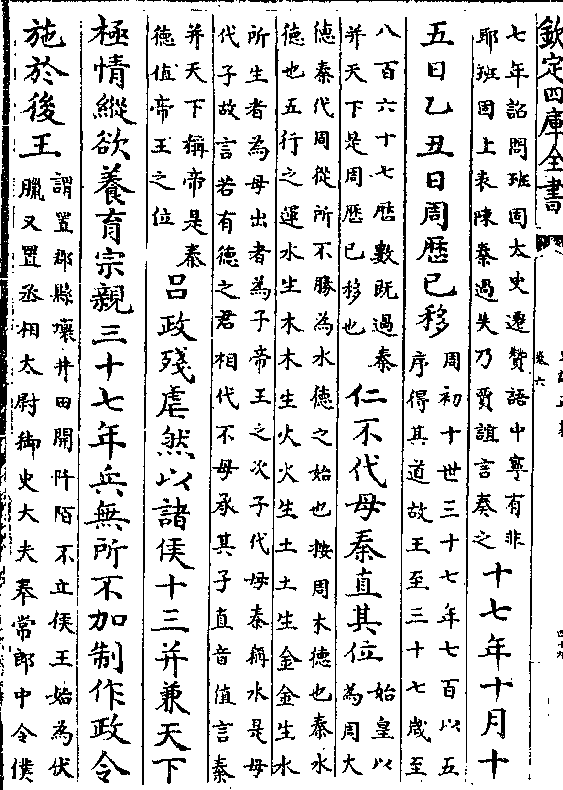 欽定四庫全書
卷六
七年詔問班固太史遷贊語中寧有非
耶班固上表陳秦過失乃賈誼言秦之
十七年十月十
五日乙丑日周歴已移
周初十世三十七年七百以五
序得其道故王至三十七歲至
八百六十七歴數既過秦
并天下是周歴已移也
仁不代母秦直其位
始皇以
為周大
德秦代周從所不勝為水德之始也按周木德也秦水
德也五行之運水生木木生火火生土土生金金生水
所生者為母出者為子帝王之次子代母秦稱水是母
代子故言若有德之君相代不母承其子直音值言秦
并天下稱帝是秦
德值帝王之位
呂政殘虐然以諸侯十三并兼天下
極情縱欲養育宗親三十七年兵無所不加制作政令
施於後王
謂置郡縣壞井田開阡陌不立侯王始為伏
臘又置丞相太尉御史大夫奉常郎中令僕